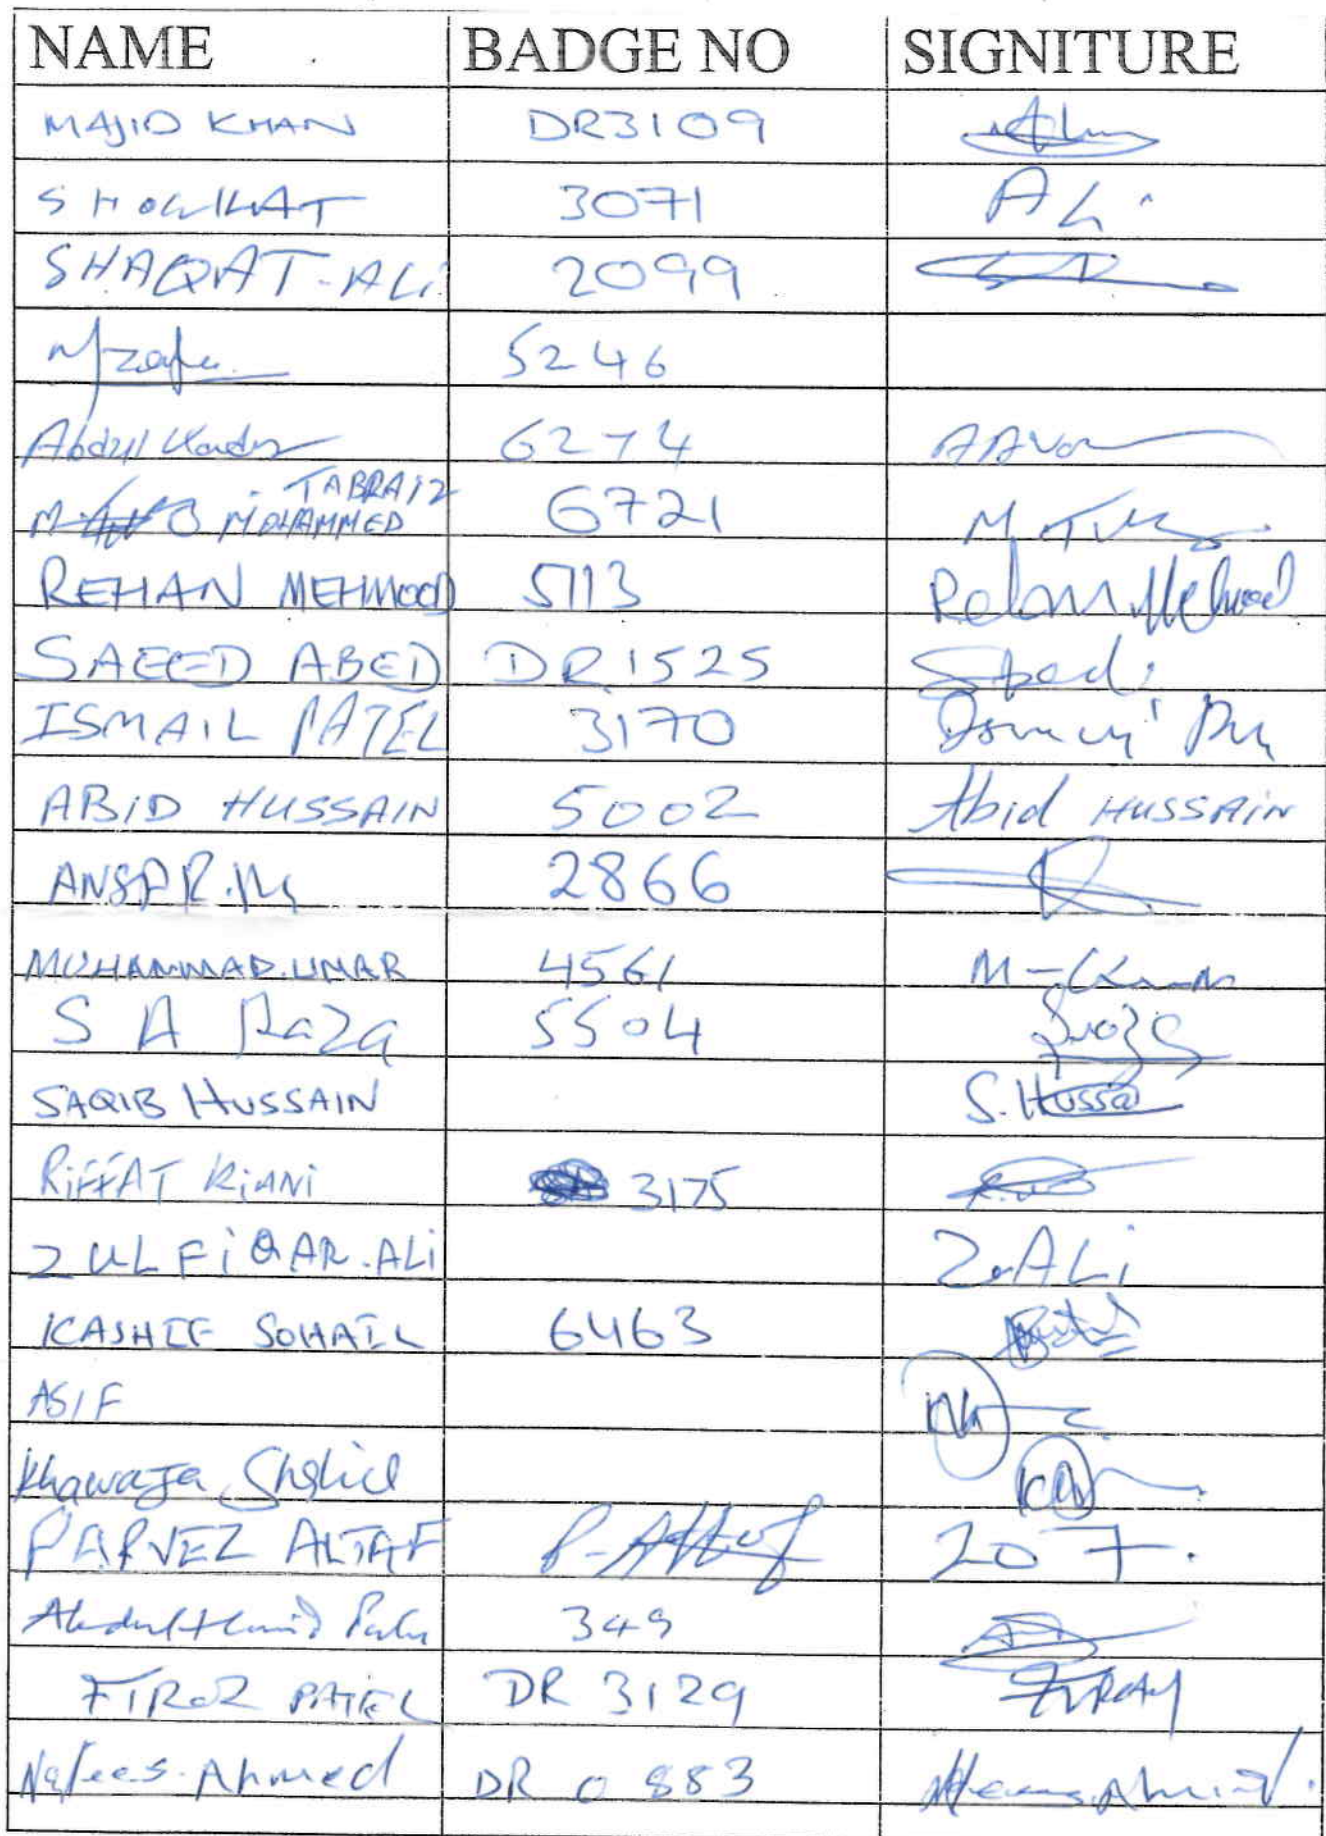 NAME BADGE NO SIGNITURE
MAJID KHAN DR3109
SHOWKAT 3071 ALi
SHAQAT-ALi 2099
5246
Abdul 6274
TABRAIZ
MOHAMMED 6721
REHAN MEHMOOD 5113 Rehan Mehmood
SAEED ABED DR1525
ISMAIL PATEL 3170
ABiD HUSSAIN 5002 Abid HUSSAiN
ANSAR 2866
MUHAMMAD.UMAR 4561
S A Raza 5504
SAQIB HUSSAIN S. Hussa
RiFFAT KiANi 3175
ZULFiQAR.ALi Z.ALi
KASHIF SOHAIL 6463
ASIF
Khawaja
PARVEZ ALTAF P-Altaf 207.
349
FIROZ PATEL DR 3129
Nafees.Ahmed DR 0883